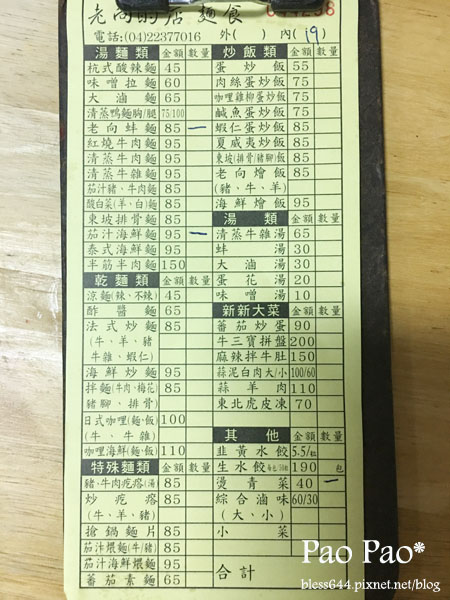 老向的店 麵食
電話:(04)22377016 外( ) 內(19)
湯麵類 金額 數量
杭式酸辣麵 45
味噌拉麵 60
大滷麵 65
清蒸鴨麵胸/腿 75/100
老向蚌麵 85 一
紅燒牛肉麵 95
清蒸牛肉麵 95
清蒸牛雜麵 95
茄汁豬、牛肉麵 85
酸白菜(羊、白)麵 85
東坡排骨麵 85
茄汁海鮮麵 95 一
泰式海鮮麵 95
半筋半肉麵 150
乾麵類 金額 數量
涼麵(辣、不辣) 45
酢醬麵 65
法式炒麵 85
(牛、羊、豬
牛雜、蝦仁)
海鮮炒麵 95
拌麵(牛肉、梅花) 85
豬腳、排骨)
日式咖哩(麵、飯) 100
(牛、牛雜)
咖哩海鮮(麵、飯) 110
特殊麵類 金額 數量
豬、牛肉疙瘩(湯) 85
炒疙瘩 85
(牛、羊、豬)
搶鍋麵片 85
茄汁煨麵(牛/豬) 85
茄汁海鮮煨麵 95
蕃茄素麵 65
炒飯類 金額 數量
蛋炒飯 55
肉絲蛋炒飯 75
咖哩雞柳蛋炒飯 75
鹹魚蛋炒飯 75
蝦仁蛋炒飯 85
夏威夷炒飯 85
東坡(排骨/豬腳)飯 85
老向燴飯 85
(豬、牛、羊)
海鮮燴飯 95
湯類 金額 數量
清蒸牛雜湯 65
蚌湯 30
大滷湯 30
蛋花湯 20
味噌湯 10
新新大菜 金額 數量
蕃茄炒蛋 90
牛三寶拼盤 200
麻辣拌牛肚 150
蒜泥白肉大/小 100/60
蒜羊肉 110
東北虎皮凍 70
其他 金額 數量
韭黃水餃 5.5/粒
生水餃 190 包
燙青菜 40 一
綜合滷味 60/30
(大、小)
小菜
合計
Pao Pao*
bless644.pixnet.net/blog